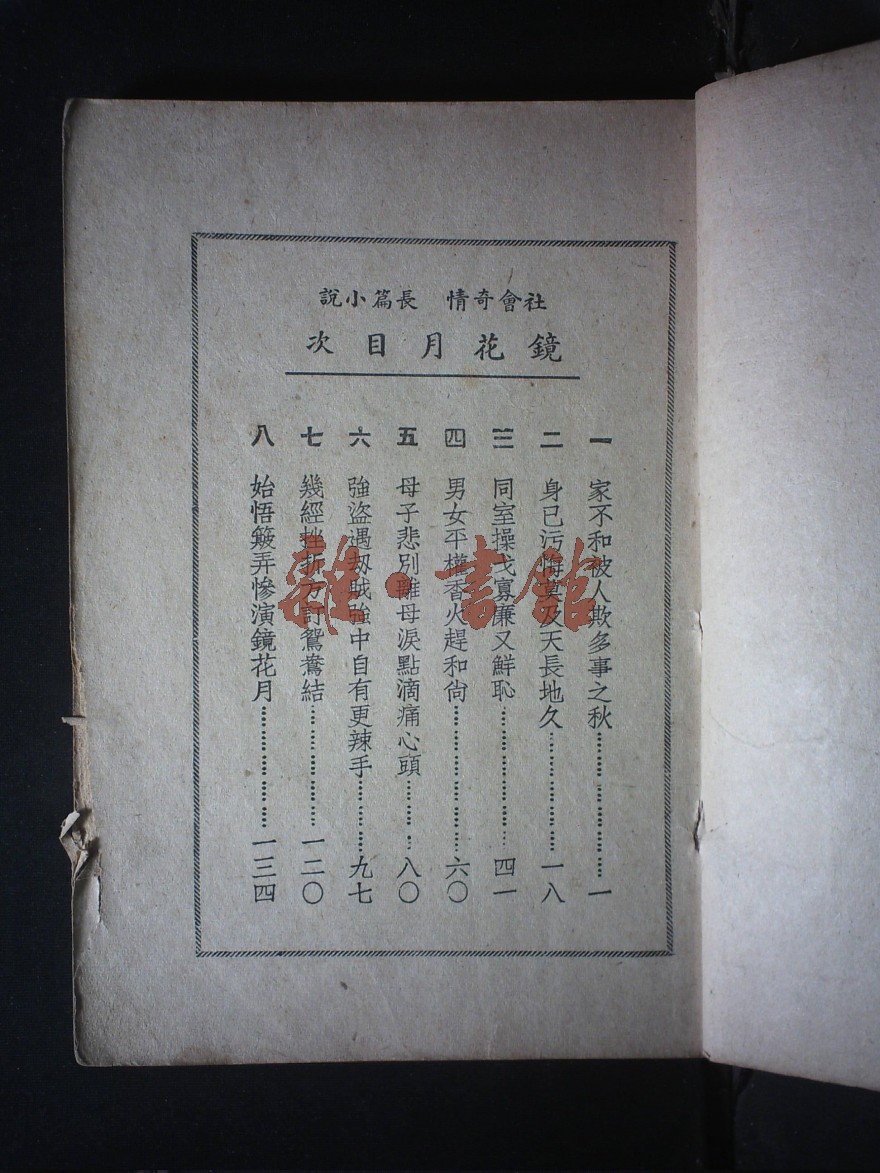 社會奇情 長篇小說
鏡花月目次
一 家不和被人欺多事之秋……………一
二 身已污悔莫及天長地久……………一八
三 同室操戈寡廉又鮮恥……………四一
四 男女平權香火趕和尙……………六〇
五 母子悲別離母淚點滴痛心頭………八〇
六 強盜遇刧賊強中自有更辣手………九七
七 幾經挫折方訂鴛鴦結……………一二〇
八 始悟簸弄慘演鏡花月……………一三四
雜·書館